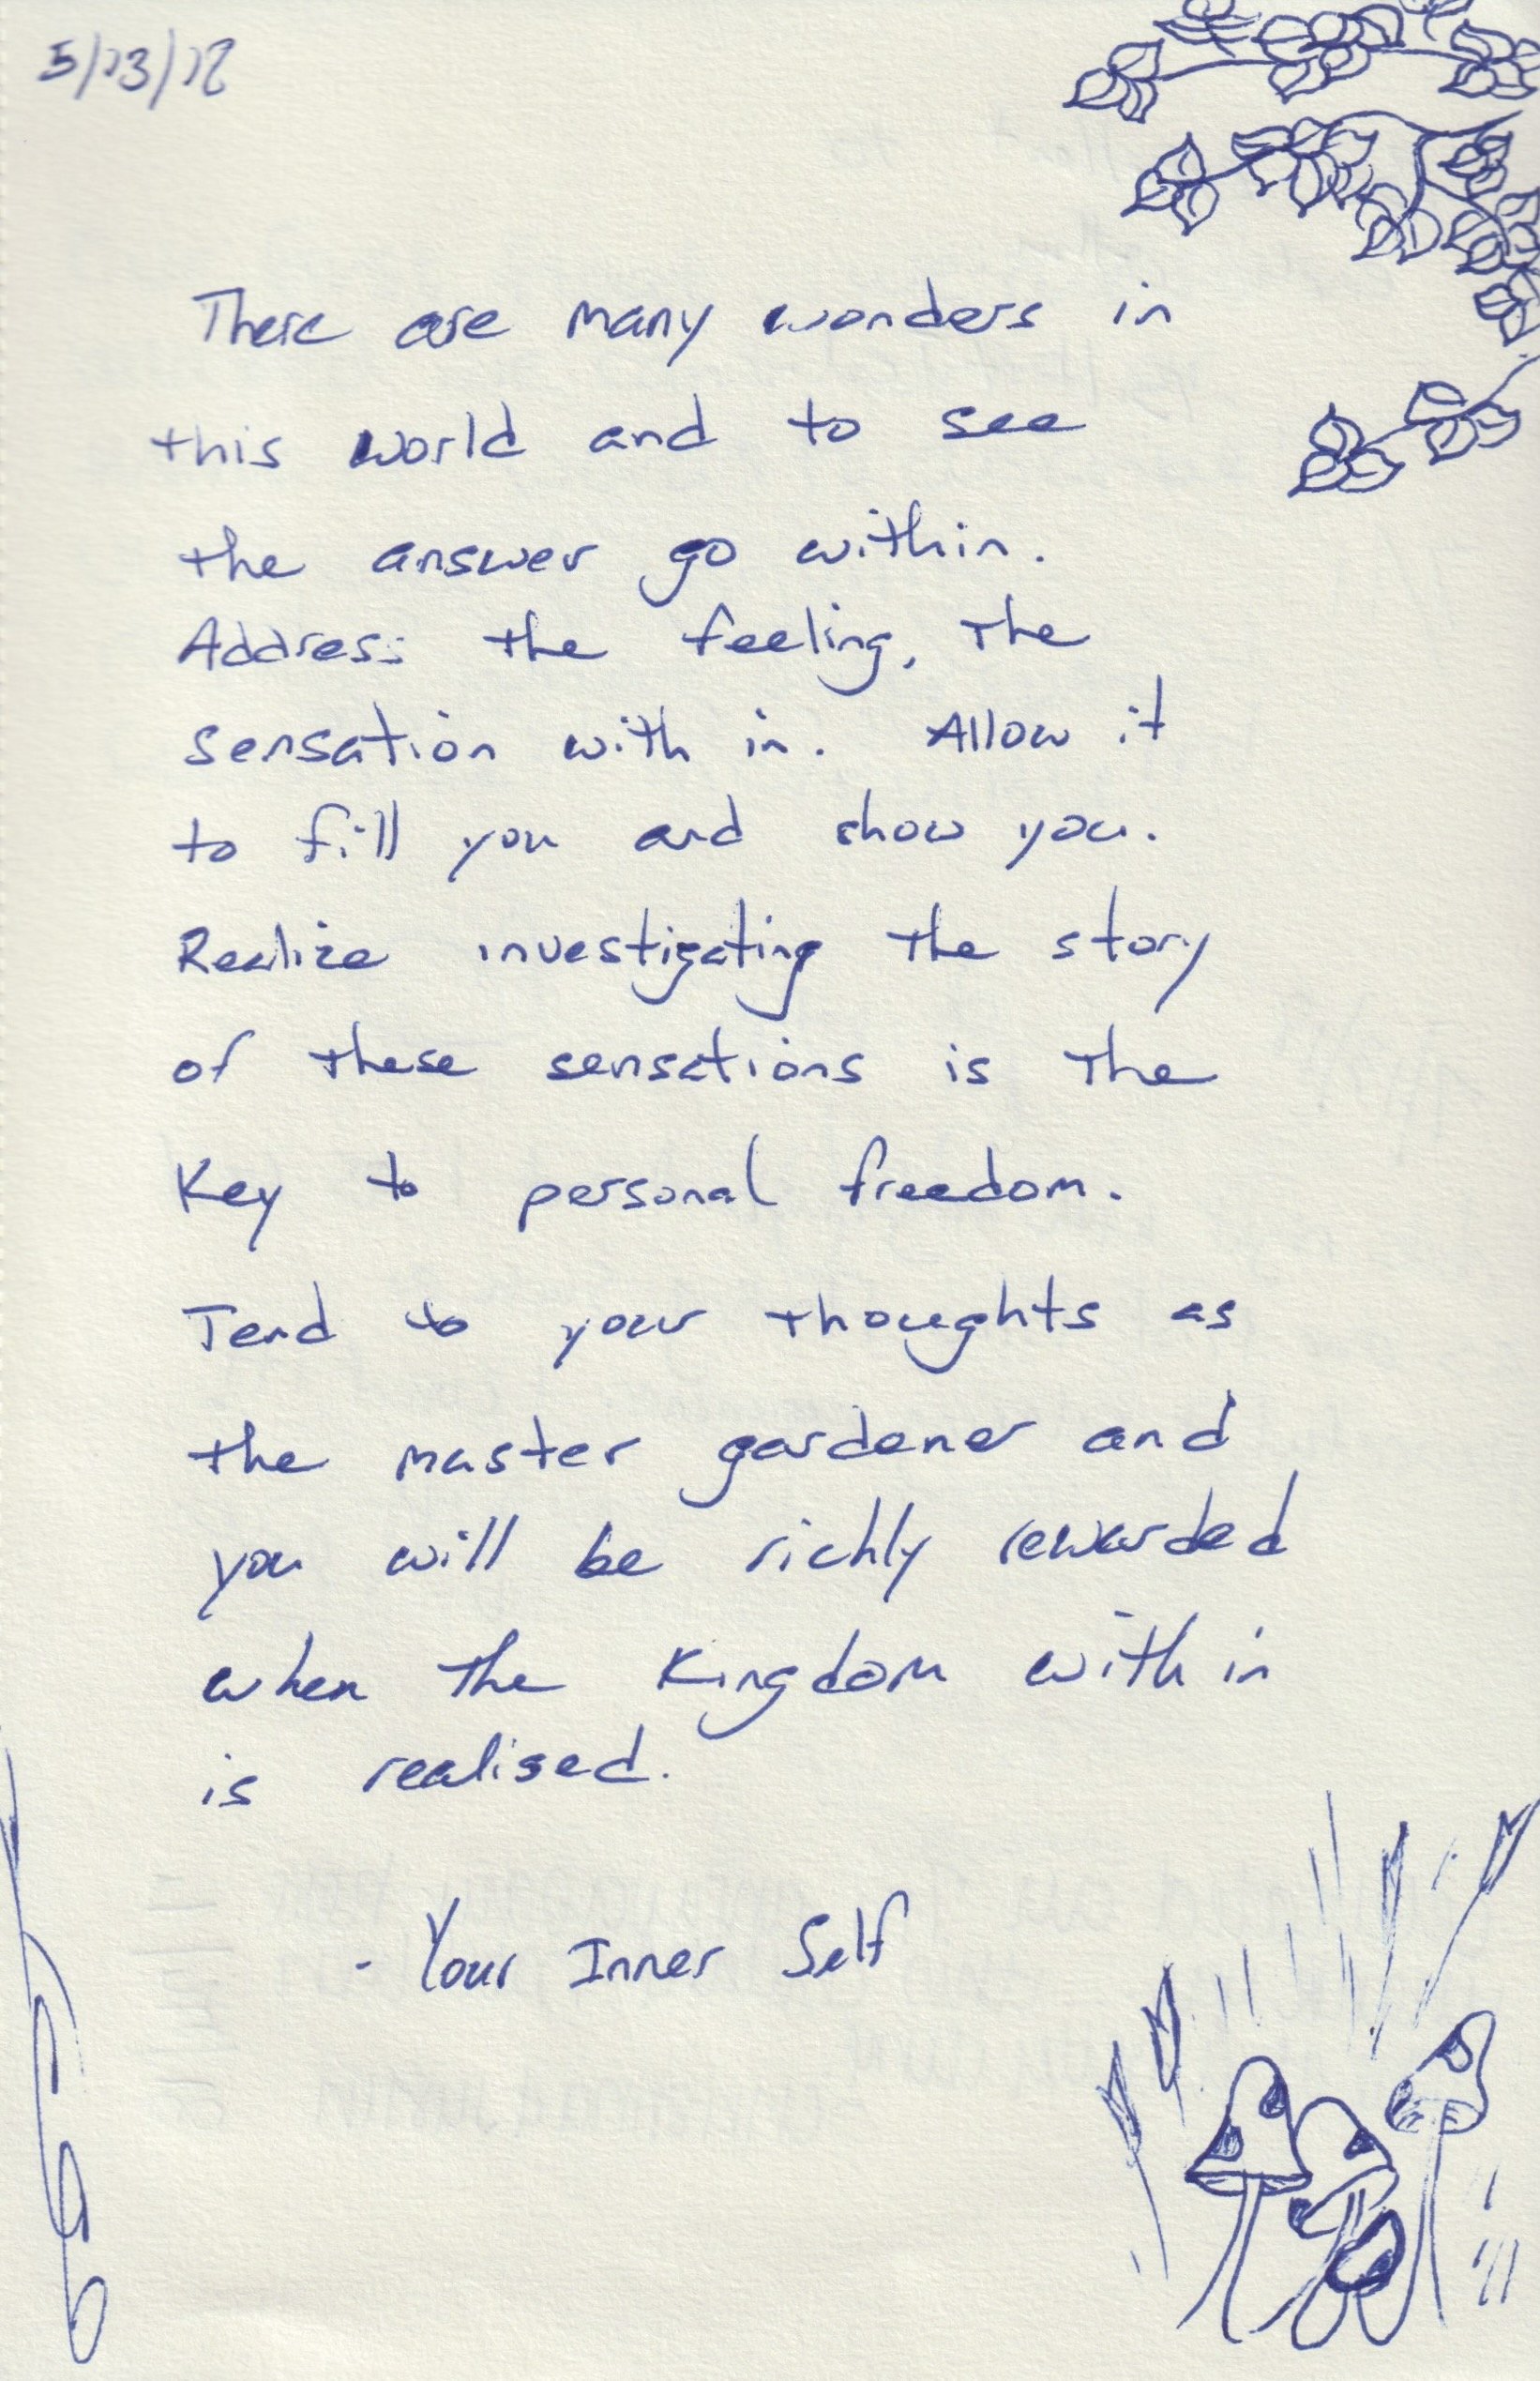 There are many wonders in
this world and to see
the answer go within.
Address the feeling, the
sensation with in. Allow it
to fill you and show you.
Realize investigating the story
of these sensations is the
Key to personal freedom.
Tend to your thoughts as
the master gardener and
you will be richly rewarded
when the Kingdom with in
is realised.
- Your Inner Self